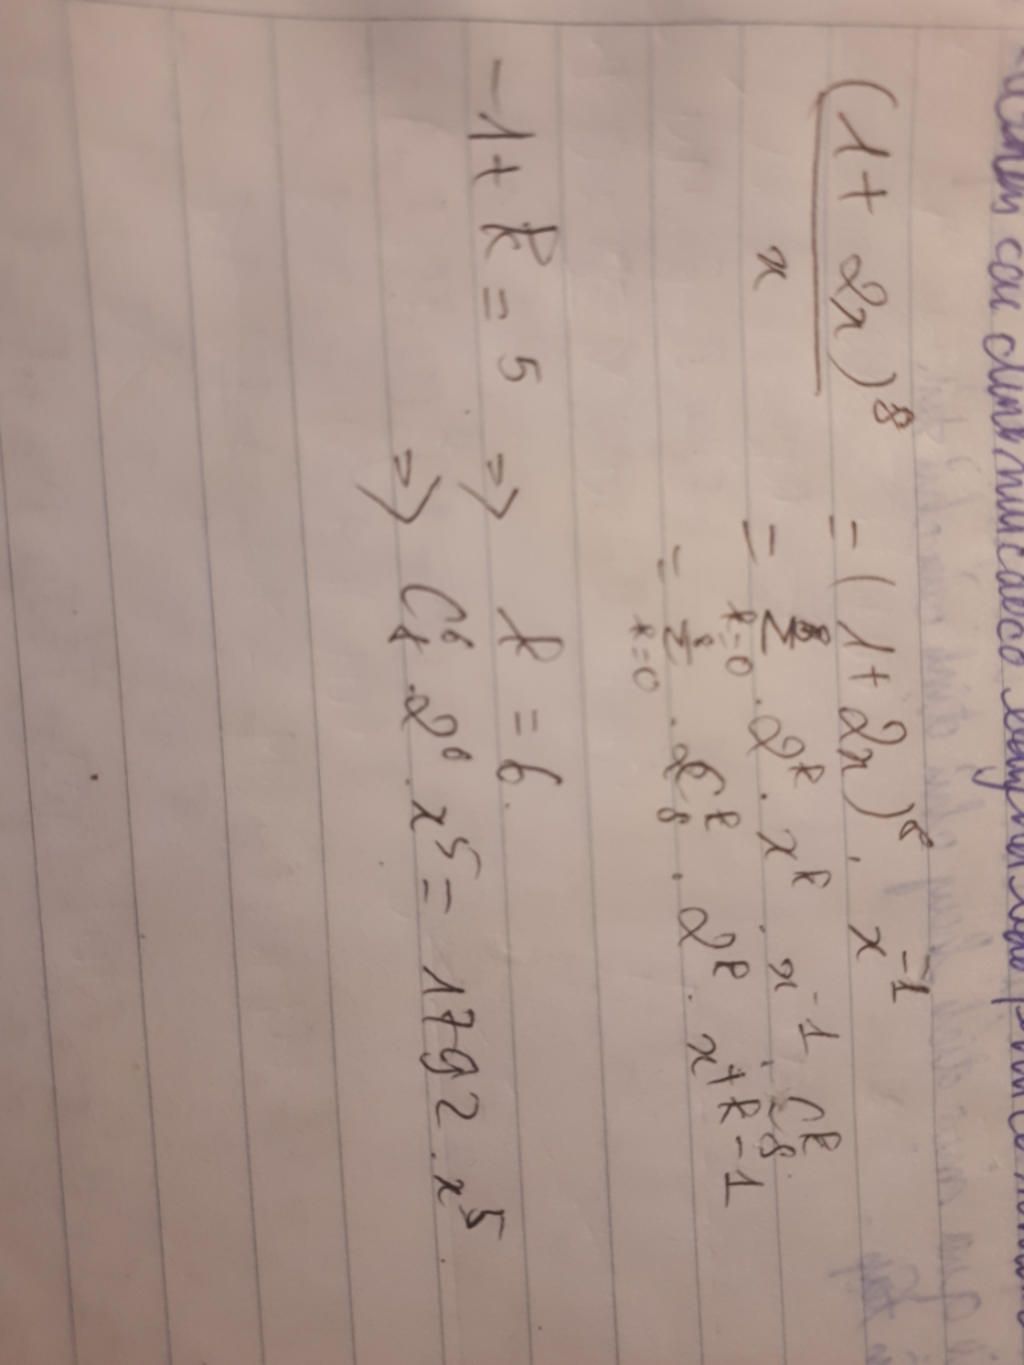 (1 + 2x)⁸ / x = (1 + 2x)⁸ . x⁻¹
= Σ (k=0, 8) . 2ᵏ . xᵏ . x⁻¹ . C₈ᵏ
= Σ (k=0, 8) . C₈ᵏ . 2ᵏ . x⁺ᵏ⁻¹
-1 + k = 5 => k = 6.
=> C₈⁶ . 2⁶ . x⁵ = 1792 . x⁵.